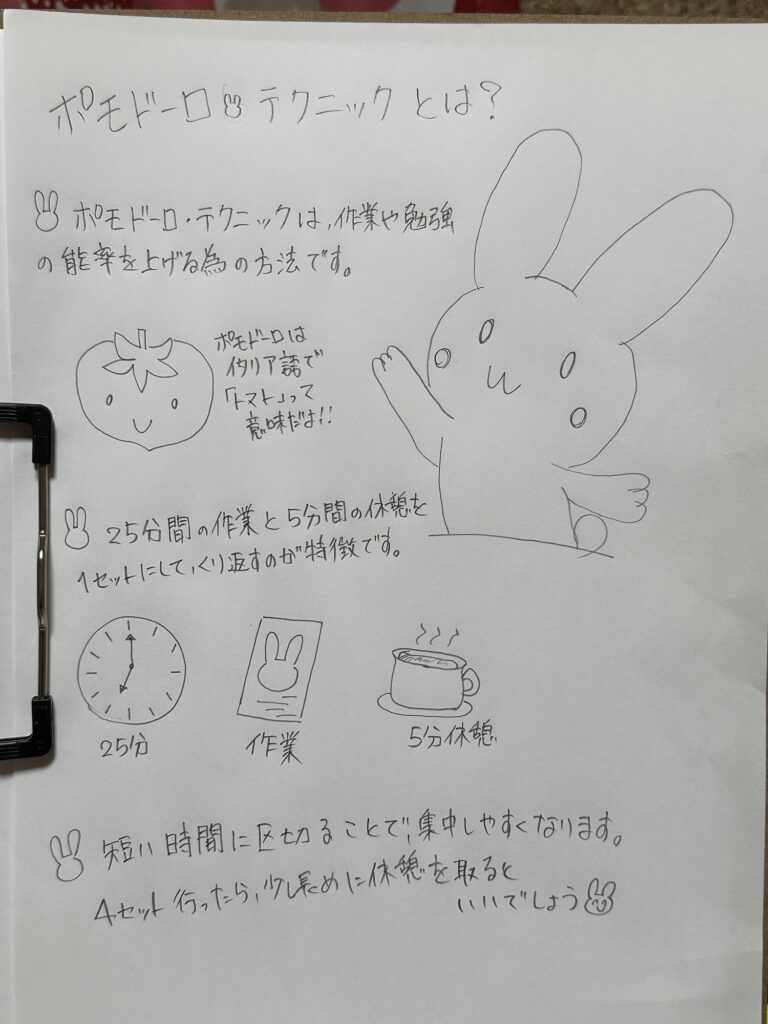 ポモドーロ テクニックとは?
ポモドーロ・テクニックは、作業や勉強
の能率を上げる為の方法です。
ポモドーロは
イタリア語で
「トマト」って
意味だよ!!
25分間の作業と5分間の休憩を
1セットにして、くり返すのが特徴です。
25分
作業
5分休憩
短い時間に区切ることで、集中しやすくなります。
4セット行ったら、少し長めに休憩を取ると
いいでしょう